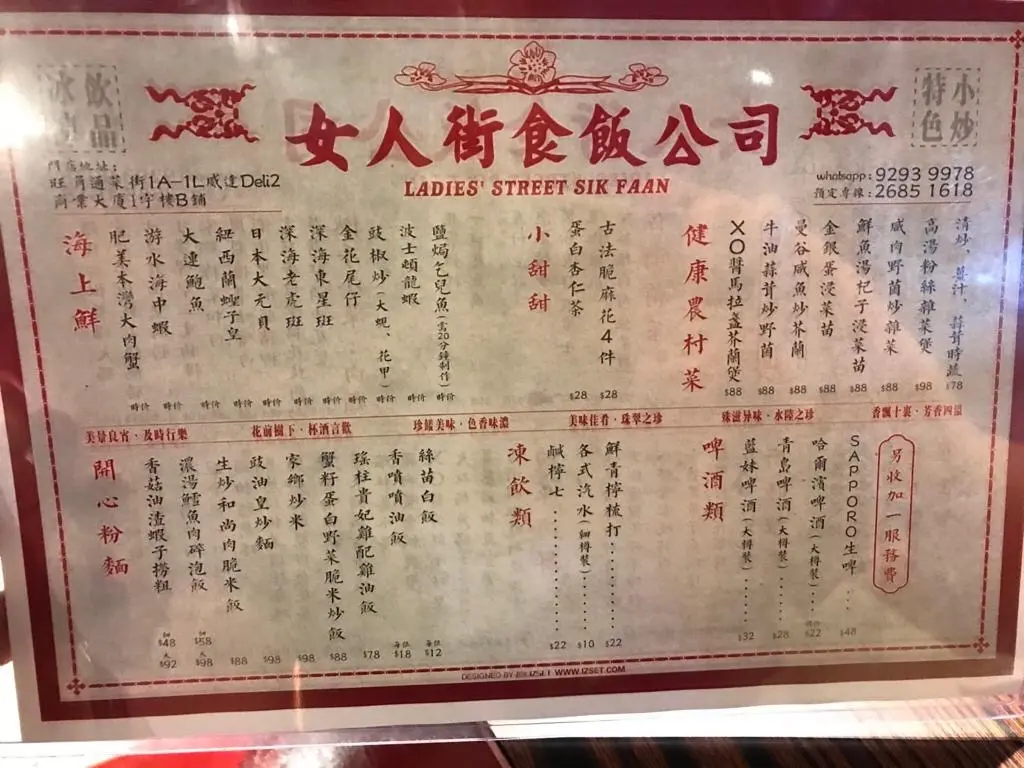 飲品
特色小炒
女人街食飯公司
LADIES' STREET SIK FAAN
門店地址:
旺角通菜街1A-1L威達Deli2
商業大廈1字樓B鋪
whatsapp:9293 9978
預定專線:2685 1618
海上鮮
肥美本灣大肉蟹 時价
游水海中蝦 時价
大連鮑魚 時价
紐西蘭蟶子皇 時价
日本大元貝 時价
深海老虎班 時价
深海東星班 時价
金花尾仔 時价
豉椒炒(大蜆、花甲) 時价
波士頓龍蝦 時价
鹽焗乞兒魚(需20分鐘制作) 時价
小甜甜
蛋白杏仁茶 $28
古法脆麻花4件 $28
健康農村菜
XO醬馬拉盞芥蘭煲 $88
牛油蒜茸炒野菌 $88
曼谷咸魚炒芥蘭 $88
金銀蛋浸菜苗 $88
鮮魚湯杞子浸菜苗 $88
咸肉野菌炒雜菜 $88
高湯粉絲雜菜煲 $98
清炒、薑汁、蒜茸時蔬 $78
美景良宵·及時行樂
花前樹下·杯酒言歡
珍餚美味·色香味濃
美味佳肴·珠翠之珍
殊滋异味·水陸之珍
香飄十裏·芳香四溢
開心粉麵
香菇油渣蝦子撈粗 細$48 大$92
濃湯鱈魚肉碎泡飯 細$58 大$98
生炒和尚肉脆米飯 $88
豉油皇炒麵 $98
家鄉炒米 $98
蟹籽蛋白野菜脆米炒飯 $88
瑤柱貴妃雞配雞油飯 $78
香噴噴油飯 每位$18
絲苗白飯 每位$12
凍飲類
鹹檸七 $22
各式汽水(細樽裝) $10
鮮青檸梳打 $22
啤酒類
藍妹啤酒(大樽裝) $32
青島啤酒(大樽裝) $28
哈爾濱啤酒(大樽裝) 特价$22
SAPPORO生啤 $48
另收加一服務費
DESIGNED BY IZSET WWW.IZSET.COM